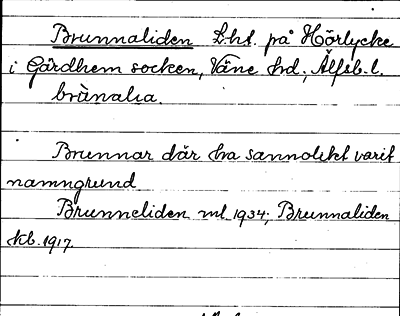 Brunnaliden L.hs. på Hörlycke
i Gärdhem socken, Väne hd., Älfsb. l.
brùnalıa.
Brunnar där ha sannolikt varit
namngrund
Brunneliden ml 1934; Brunnaliden
kb. 1917.